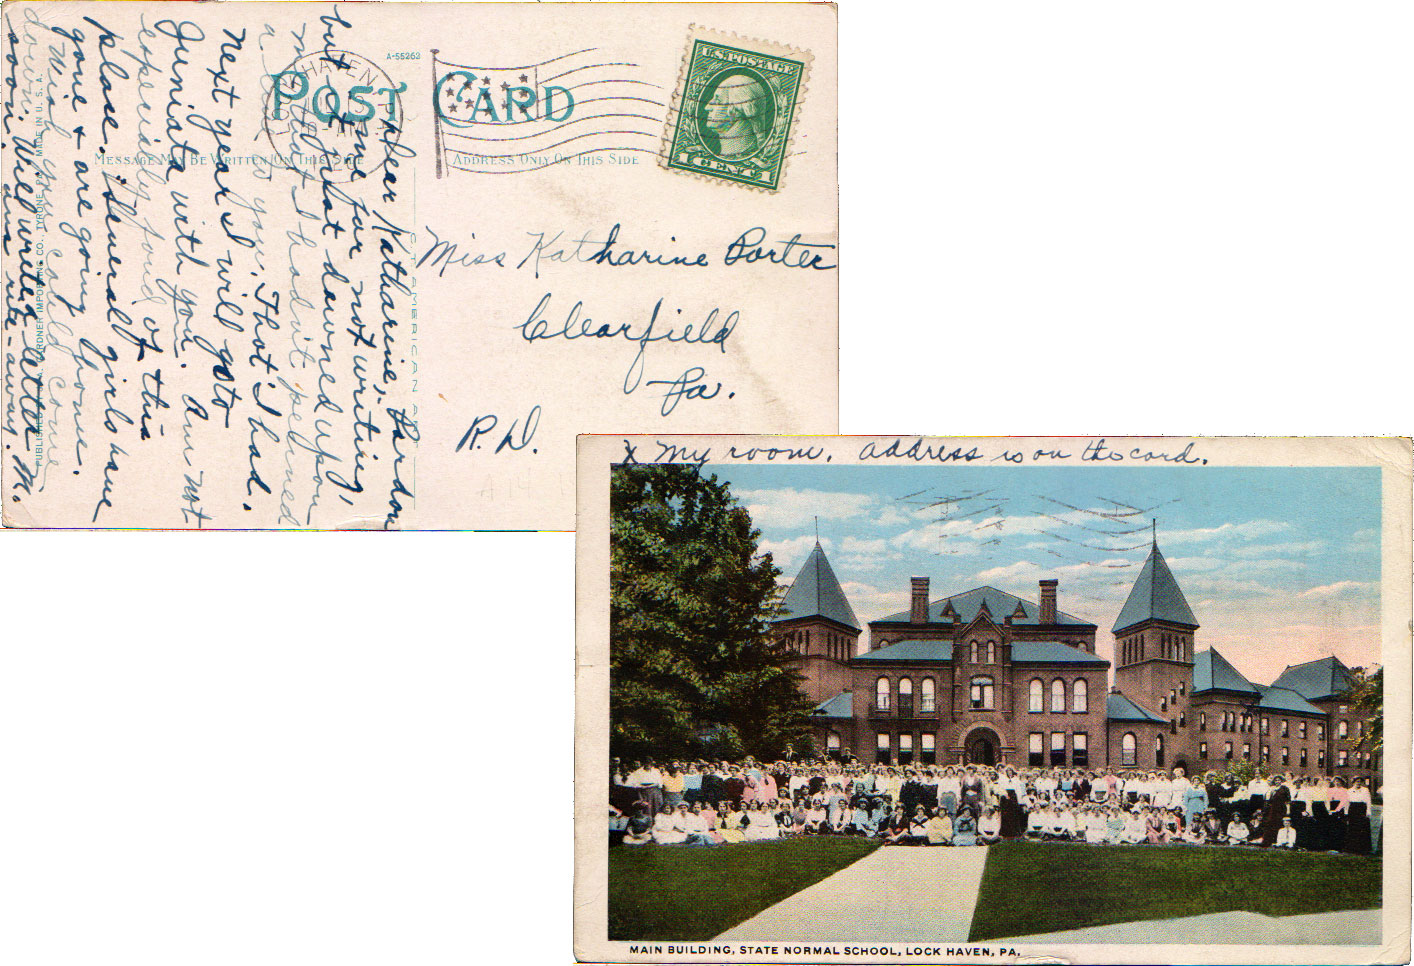 A-55263
POST CARD
MESSAGE MAY BE WRITTEN ON THIS SIDE
ADDRESS ONLY ON THIS SIDE
HAVEN
U.S. POSTAGE
1 CENT 1
Dear Katharine; Pardon
me for not writing,
but it just dawned upon
me that I hadn't penned
a line to you. That I had.
Next year I will go to
Juniata with you. Am not
especially fond of this
place. Several girls have
gone & are going home.
Wish you could come
down. Will write a letter
soon. ans rite-away. M.
Miss Katharine Porter
Clearfield
Pa.
R.D.
C.T. AMERICAN ART
GARDNER IMPORTING CO., TYRONE, PA. MADE IN U.S.A.
X My room. address is on the card.
MAIN BUILDING, STATE NORMAL SCHOOL, LOCK HAVEN, PA.